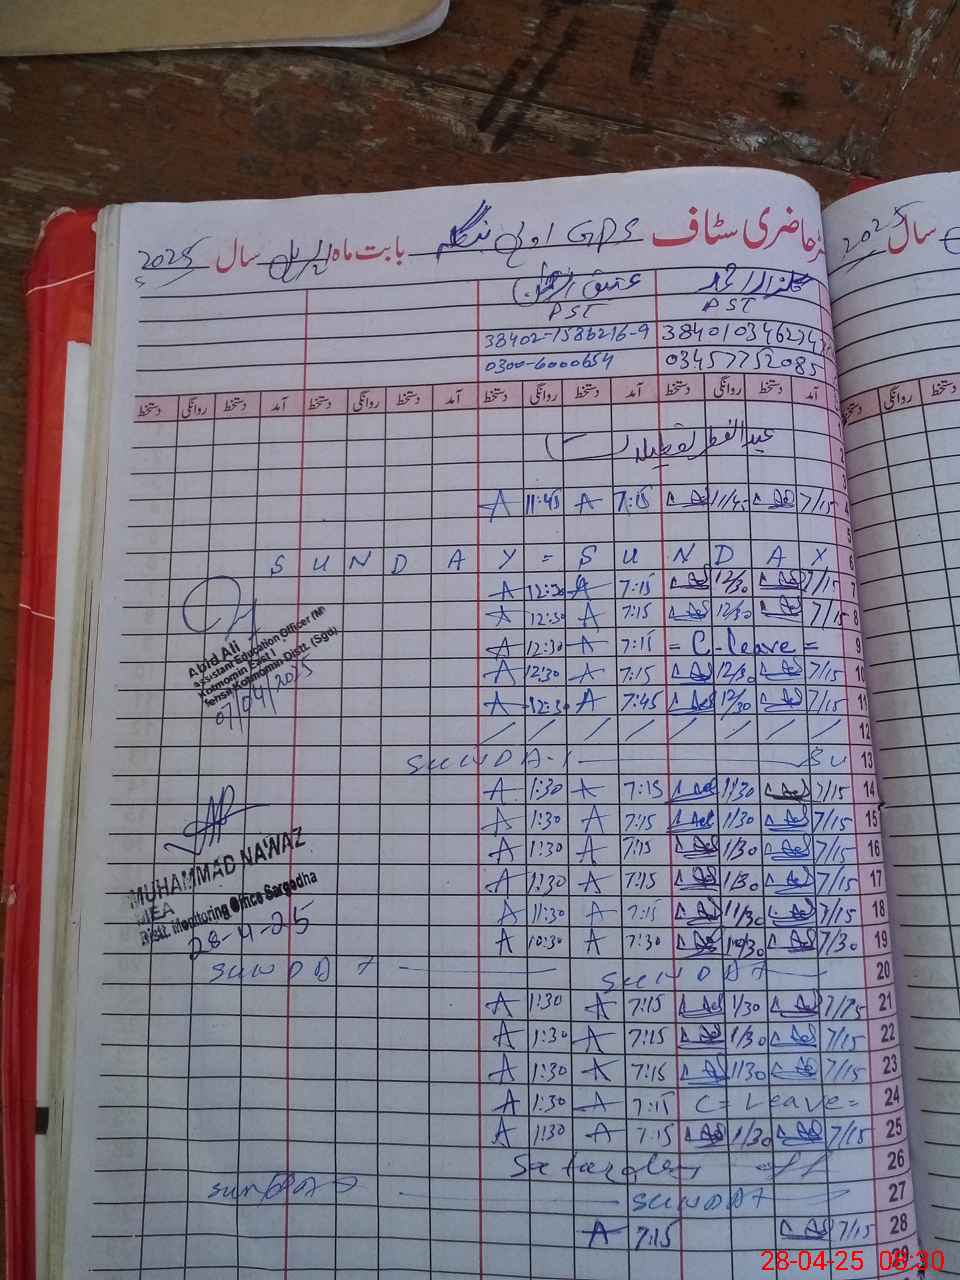 حاضری سٹاف GPS بابت ماہ اپریل سال 2025
سال 2025
عتیق الرحمٰن
PST PST
38402-1586216-9
0300-6000654 03457752085
آمد دستخط روانگی دستخط آمد دستخط روانگی دستخط آمد دستخط روانگی دستخط آمد دستخط روانگی دستخط
روانگی دستخط
2
3
عید الفطر
4 7/15 11/45 7:15 A 11:45 A
5
6 S U N D A Y = S U N D A Y
7 7/15 12/30 7:15 A 12:30 A
8 7/15 12/30 7:15 A 12:30 A
9 = C-leave = 7:15 A 12:30 A
10 7/15 12/30 7:15 A 12:30 A
11 7/15 12/30 7:45 A 12:30 A
12
13 SUNDAY SU
14 7/15 1/30 7:15 A 1:30 A
15 7/15 1/30 7:15 A 1:30 A
16 7/15 1/30 7:15 A 1:30 A
17 7/15 1/30 7:15 A 1:30 A
18 7/15 11/30 7:15 A 11:30 A
19 7/30 10/30 7:30 A 10:30 A
20 SUNDAY SUNDAY
21 7/15 1/30 7:15 A 1:30 A
22 7/15 1/30 7:15 A 1:30 A
23 7/15 1/30 7:15 A 1:30 A
24 C = Leave = 7:15 A 1:30 A
25 7/15 1/30 7:15 A 1:30 A
26 Saturday off
27 SUNDAY SUNDAY
28 7/15 7:15 A
29
Abid Ali
Assistant Education Officer (M)
Kotmomin East I
Tehsil Kotmomin Distt. (Sgd)
07/04/2025
MUHAMMAD NAWAZ
MEA
Distt. Monitoring Office Sargodha
28-4-25
28-04-25 08:30